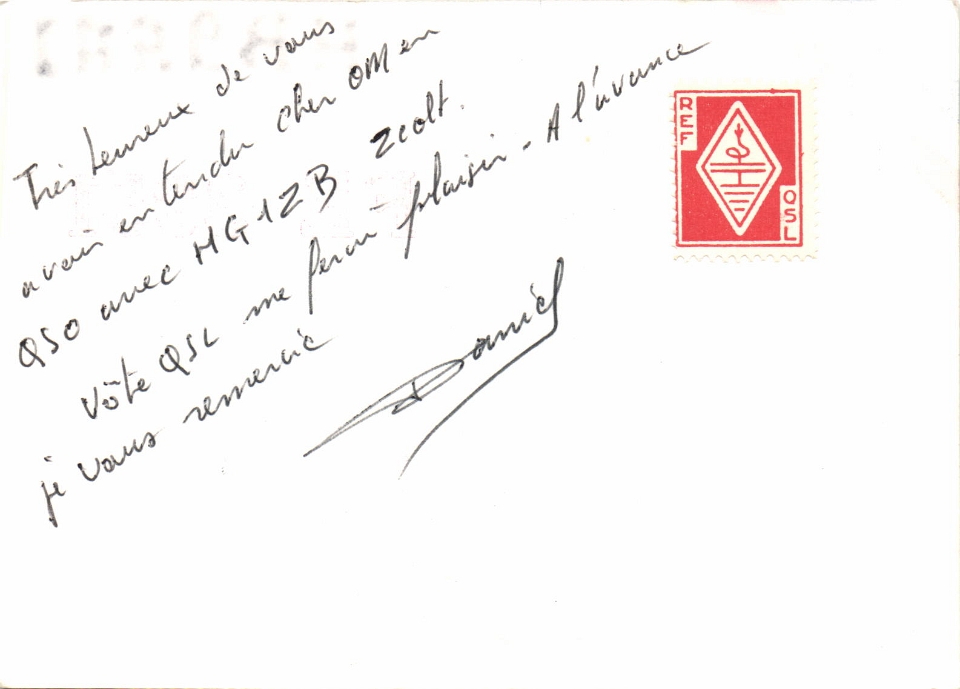 Très heureux de vous
avoir entendu cher OM en
QSO avec HG1ZB Zcolt.
Vôte QSL me fera plaisir - A l'avance
je vous remercie
Daniel
REF
QSL